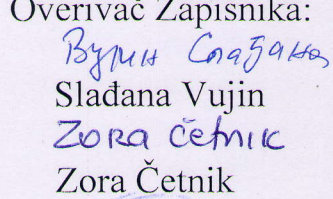 Overivač Zapisnika:
Вујин Слађана
Slađana Vujin
ZORA Četnik
Zora Četnik